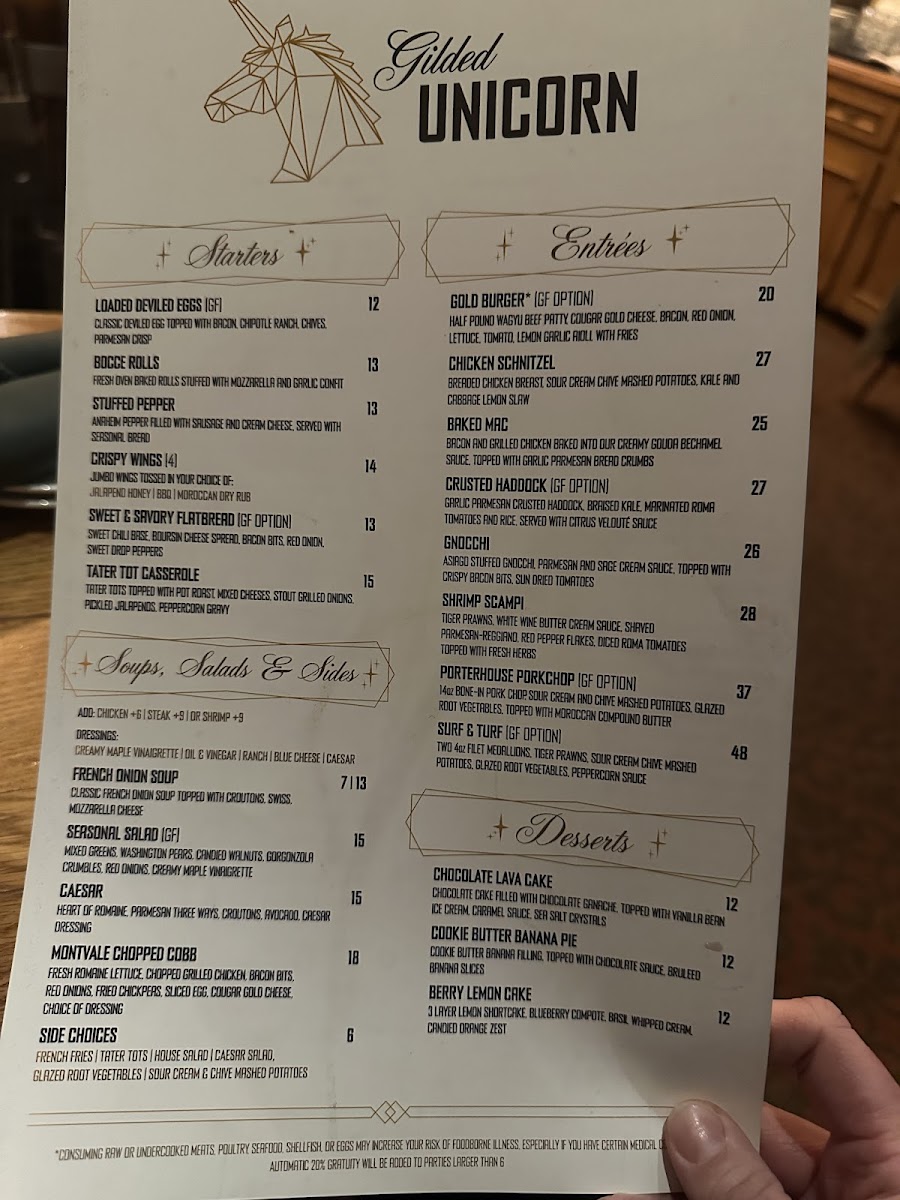 Gilded
UNICORN
Starters
LOADED DEVILED EGGS (GF) 12
CLASSIC DEVILED EGG TOPPED WITH BACON, CHIPOTLE RANCH, CHIVES,
PARMESAN CRISP
BOCCE ROLLS 13
FRESH OVEN BAKED ROLLS STUFFED WITH MOZZARELLA AND GARLIC CONFIT
STUFFED PEPPER 13
ANAHEIM PEPPER FILLED WITH SAUSAGE AND CREAM CHEESE, SERVED WITH
SEASONAL BREAD
CRISPY WINGS (4) 14
JUMBO WINGS TOSSED IN YOUR CHOICE OF:
JALAPENO HONEY | BBQ | MOROCCAN DRY RUB
SWEET & SAVORY FLATBREAD (GF OPTION) 13
SWEET CHILI BASE, BOURSIN CHEESE SPREAD, BACON BITS, RED ONION,
SWEET DROP PEPPERS
TATER TOT CASSEROLE 15
TATER TOTS TOPPED WITH POT ROAST, MIXED CHEESES, STOUT GRILLED ONIONS,
PICKLED JALAPENOS, PEPPERCORN GRAVY
Soups, Salads & Sides
ADD: CHICKEN +6 | STEAK +9 | OR SHRIMP +9
DRESSINGS:
CREAMY MAPLE VINAIGRETTE | OIL & VINEGAR | RANCH | BLUE CHEESE | CAESAR
FRENCH ONION SOUP 7 | 13
CLASSIC FRENCH ONION SOUP TOPPED WITH CROUTONS, SWISS,
MOZZARELLA CHEESE
SEASONAL SALAD (GF) 15
MIXED GREENS, WASHINGTON PEARS, CANDIED WALNUTS, GORGONZOLA
CRUMBLES, RED ONIONS, CREAMY MAPLE VINAIGRETTE
CAESAR 15
HEART OF ROMAINE, PARMESAN THREE WAYS, CROUTONS, AVOCADO, CAESAR
DRESSING
MONTVALE CHOPPED COBB 18
FRESH ROMAINE LETTUCE, CHOPPED GRILLED CHICKEN, BACON BITS,
RED ONIONS, FRIED CHICKPEAS, SLICED EGG, COUGAR GOLD CHEESE,
CHOICE OF DRESSING
SIDE CHOICES 6
FRENCH FRIES | TATER TOTS | HOUSE SALAD | CAESAR SALAD,
GLAZED ROOT VEGETABLES | SOUR CREAM & CHIVE MASHED POTATOES
Entrées
GOLD BURGER* (GF OPTION) 20
HALF POUND WAGYU BEEF PATTY, COUGAR GOLD CHEESE, BACON, RED ONION,
LETTUCE, TOMATO, LEMON GARLIC AIOLI WITH FRIES
CHICKEN SCHNITZEL 27
BREADED CHICKEN BREAST, SOUR CREAM CHIVE MASHED POTATOES, KALE AND
CABBAGE LEMON SLAW
BAKED MAC 25
BACON AND GRILLED CHICKEN BAKED INTO OUR CREAMY GOUDA BECHAMEL
SAUCE, TOPPED WITH GARLIC PARMESAN BREAD CRUMBS
CRUSTED HADDOCK (GF OPTION) 27
GARLIC PARMESAN CRUSTED HADDOCK, BRAISED KALE, MARINATED ROMA
TOMATOES AND RICE, SERVED WITH CITRUS VELOUTÉ SAUCE
GNOCCHI 26
ASIAGO STUFFED GNOCCHI, PARMESAN AND SAGE CREAM SAUCE, TOPPED WITH
CRISPY BACON BITS, SUN DRIED TOMATOES
SHRIMP SCAMPI 28
TIGER PRAWNS, WHITE WINE BUTTER CREAM SAUCE, SHAVED
PARMESAN-REGGIANO, RED PEPPER FLAKES, DICED ROMA TOMATOES
TOPPED WITH FRESH HERBS
PORTERHOUSE PORKCHOP (GF OPTION) 37
14oz BONE-IN PORK CHOP SOUR CREAM AND CHIVE MASHED POTATOES, GLAZED
ROOT VEGETABLES, TOPPED WITH MOROCCAN COMPOUND BUTTER
SURF & TURF (GF OPTION) 48
TWO 4oz FILET MEDALLIONS, TIGER PRAWNS, SOUR CREAM CHIVE MASHED
POTATOES, GLAZED ROOT VEGETABLES, PEPPERCORN SAUCE
Desserts
CHOCOLATE LAVA CAKE 12
CHOCOLATE CAKE FILLED WITH CHOCOLATE GANACHE, TOPPED WITH VANILLA BEAN
ICE CREAM, CARAMEL SAUCE, SEA SALT CRYSTALS
COOKIE BUTTER BANANA PIE 12
COOKIE BUTTER BANANA FILLING, TOPPED WITH CHOCOLATE SAUCE, BRULEED
BANANA SLICES
BERRY LEMON CAKE 12
3 LAYER LEMON SHORTCAKE, BLUEBERRY COMPOTE, BASIL WHIPPED CREAM,
CANDIED ORANGE ZEST
*CONSUMING RAW OR UNDERCOOKED MEATS, POULTRY, SEAFOOD, SHELLFISH, OR EGGS MAY INCREASE YOUR RISK OF FOODBORNE ILLNESS, ESPECIALLY IF YOU HAVE CERTAIN MEDICAL
AUTOMATIC 20% GRATUITY WILL BE ADDED TO PARTIES LARGER THAN 6